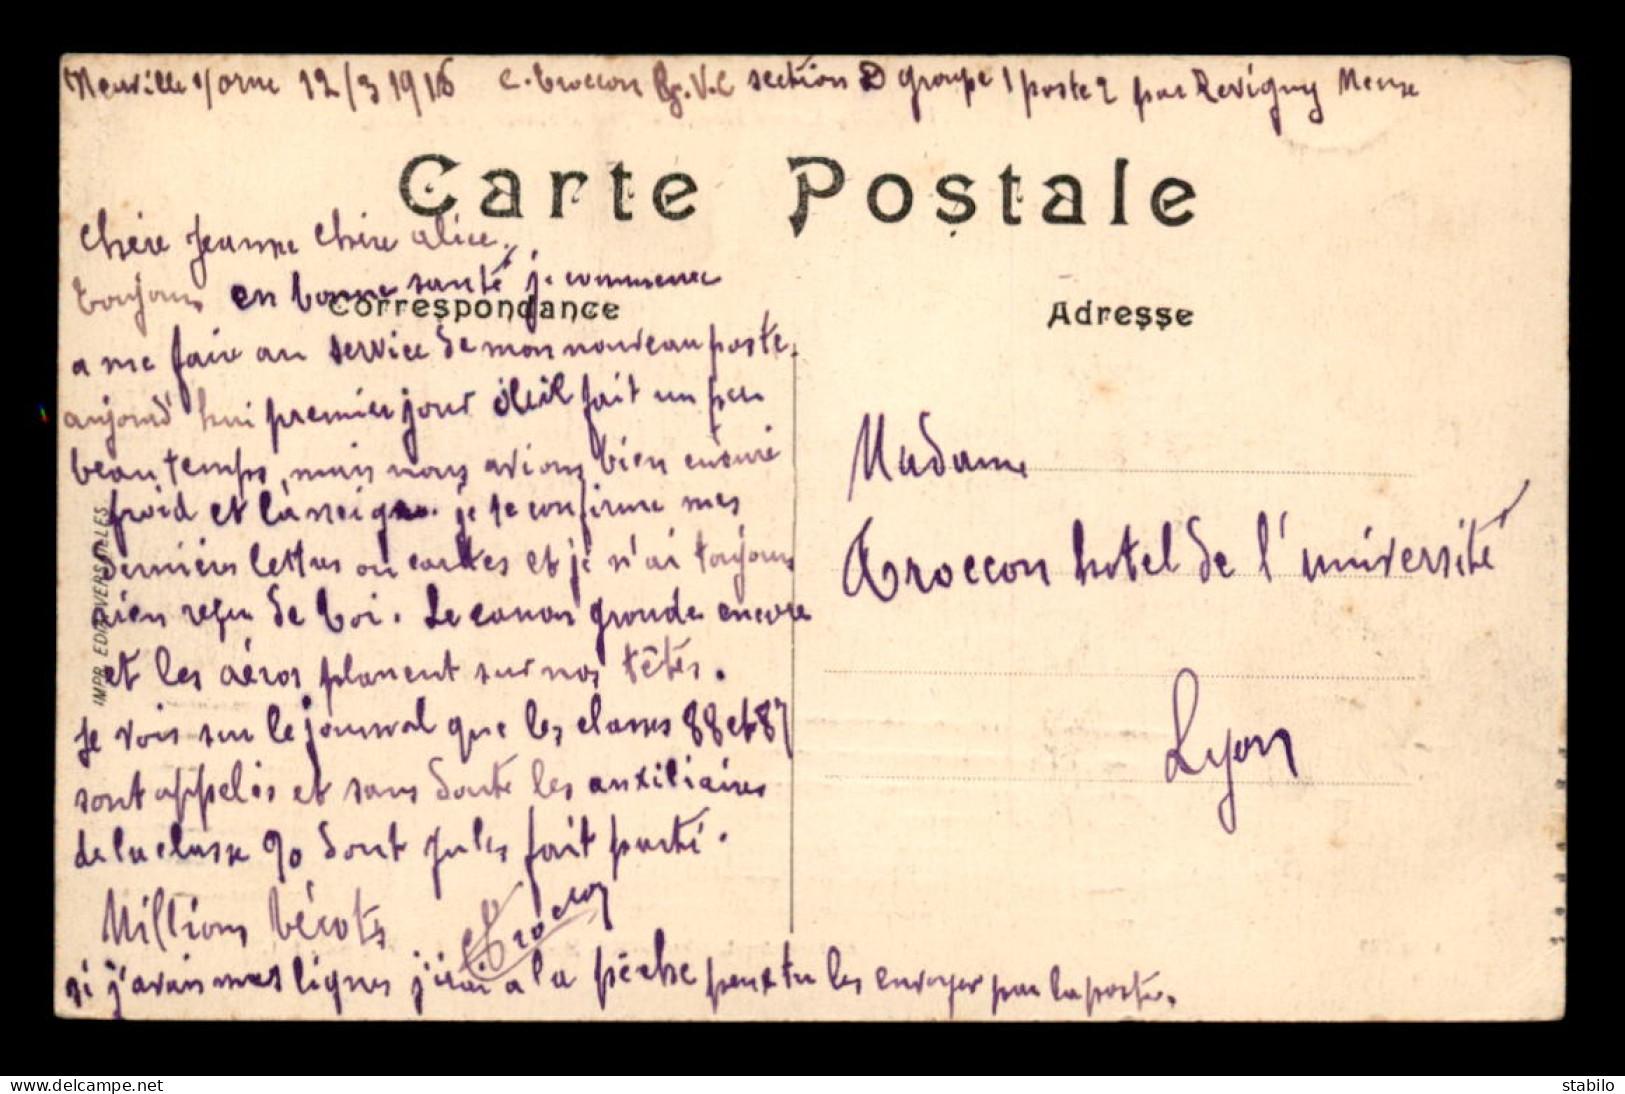 Neuville s/orne 12/3 1916 C. Troccon G.V.C section D groupe 1 poste 2 par Revigny Meuse
Carte Postale
Chère Jeanne Chère alice.
Toujours en bonne santé je commence
Correspondance
a me faire au service de mon nouveau poste.
aujourd'hui premier jour il fait un peu
beau temps, mais nous avions bien encore
froid et la neige. je te confirme mes
derniers lettres ou cartes et je n'ai toujours
rien reçu de toi. Le canon gronde encore
et les aéros planent sur nos têtes.
Je vois sur le journal que les classes 88 et 87
sont appelés et sans doute les auxiliaires
de la classe 90 dont Jules fait parti.
Millions bécots
Troccon
si j'avais mes lignes j'irai a la pêche peux tu les envoyer par la poste.
IMPR. EDIA VERSAILLES
Adresse
Madame
Troccon hotel de l'université
Lyon
delcampe.net
stabilo